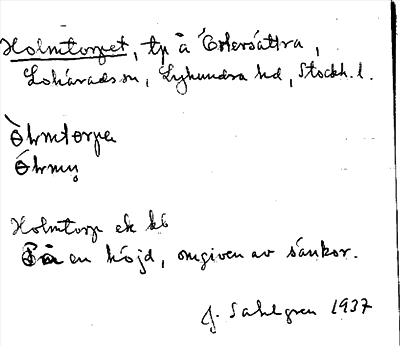 Holmtorpet, tp å Östersättra,
Lohärads sn, Lyhundra hd, Stockh. l.
Holmtorp ek kb
På en höjd, omgiven av sänkor.
J. Sahlgren 1937